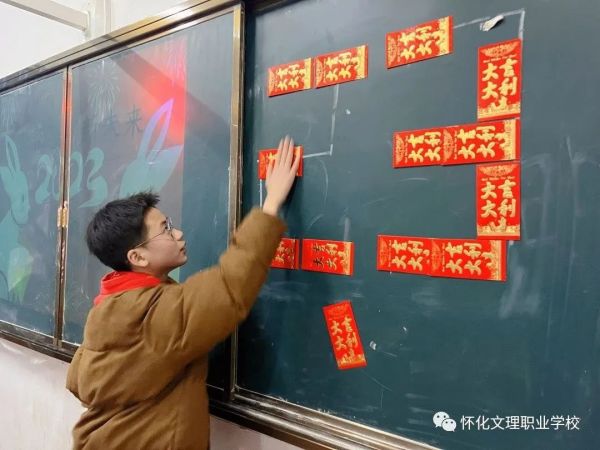 未来
2023
大吉大利
大吉大利
大吉大利
大吉大利
大吉大利
大吉大利
大吉大利
大吉大利
大吉大利
大吉大利
大吉大利
大吉大利
怀化文理职业学校